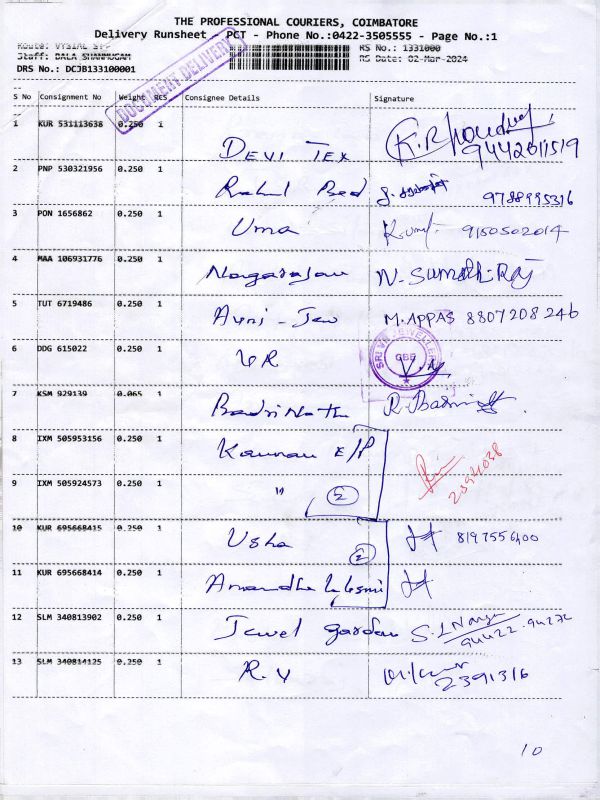 THE PROFESSIONAL COURIERS, COIMBATORE
Delivery Runsheet - PCT - Phone No.:0422-3505555 - Page No.:1
Route: VYSIAL ST- RS No.: 1331000
Staff: BALA SHANMUGAM RS Date: 02-Mar-2024
DRS No.: DCJB133100001
DOCUMENT DELIVERY
S No Consignment No Weight PCS Consignee Details Signature
1 KUR 531113638 0.250 1 DEVI TEX 9442011519
2 PNP 530321956 0.250 1 Rahul 9788995316
3 PON 1656862 0.250 1 Uma 9150502014
4 MAA 106931776 0.250 1 Nagarajan
5 TUT 6719486 0.250 1 M.APPAS 8807208246
6 DDG 615022 0.250 1 VR
SRI VR JEWELLERS
CBE
7 KSM 929139 0.065 1 BadriNath
8 IXM 505953156 0.250 1 Kannan E/P
2394038
9 IXM 505924573 0.250 1 " 2
10 KUR 695668415 0.250 1 Usha 2 8197556400
11 KUR 695668414 0.250 1
12 SLM 340813902 0.250 1 Jewel garden
13 SLM 340814125 0.250 1 R.V 2391316
10